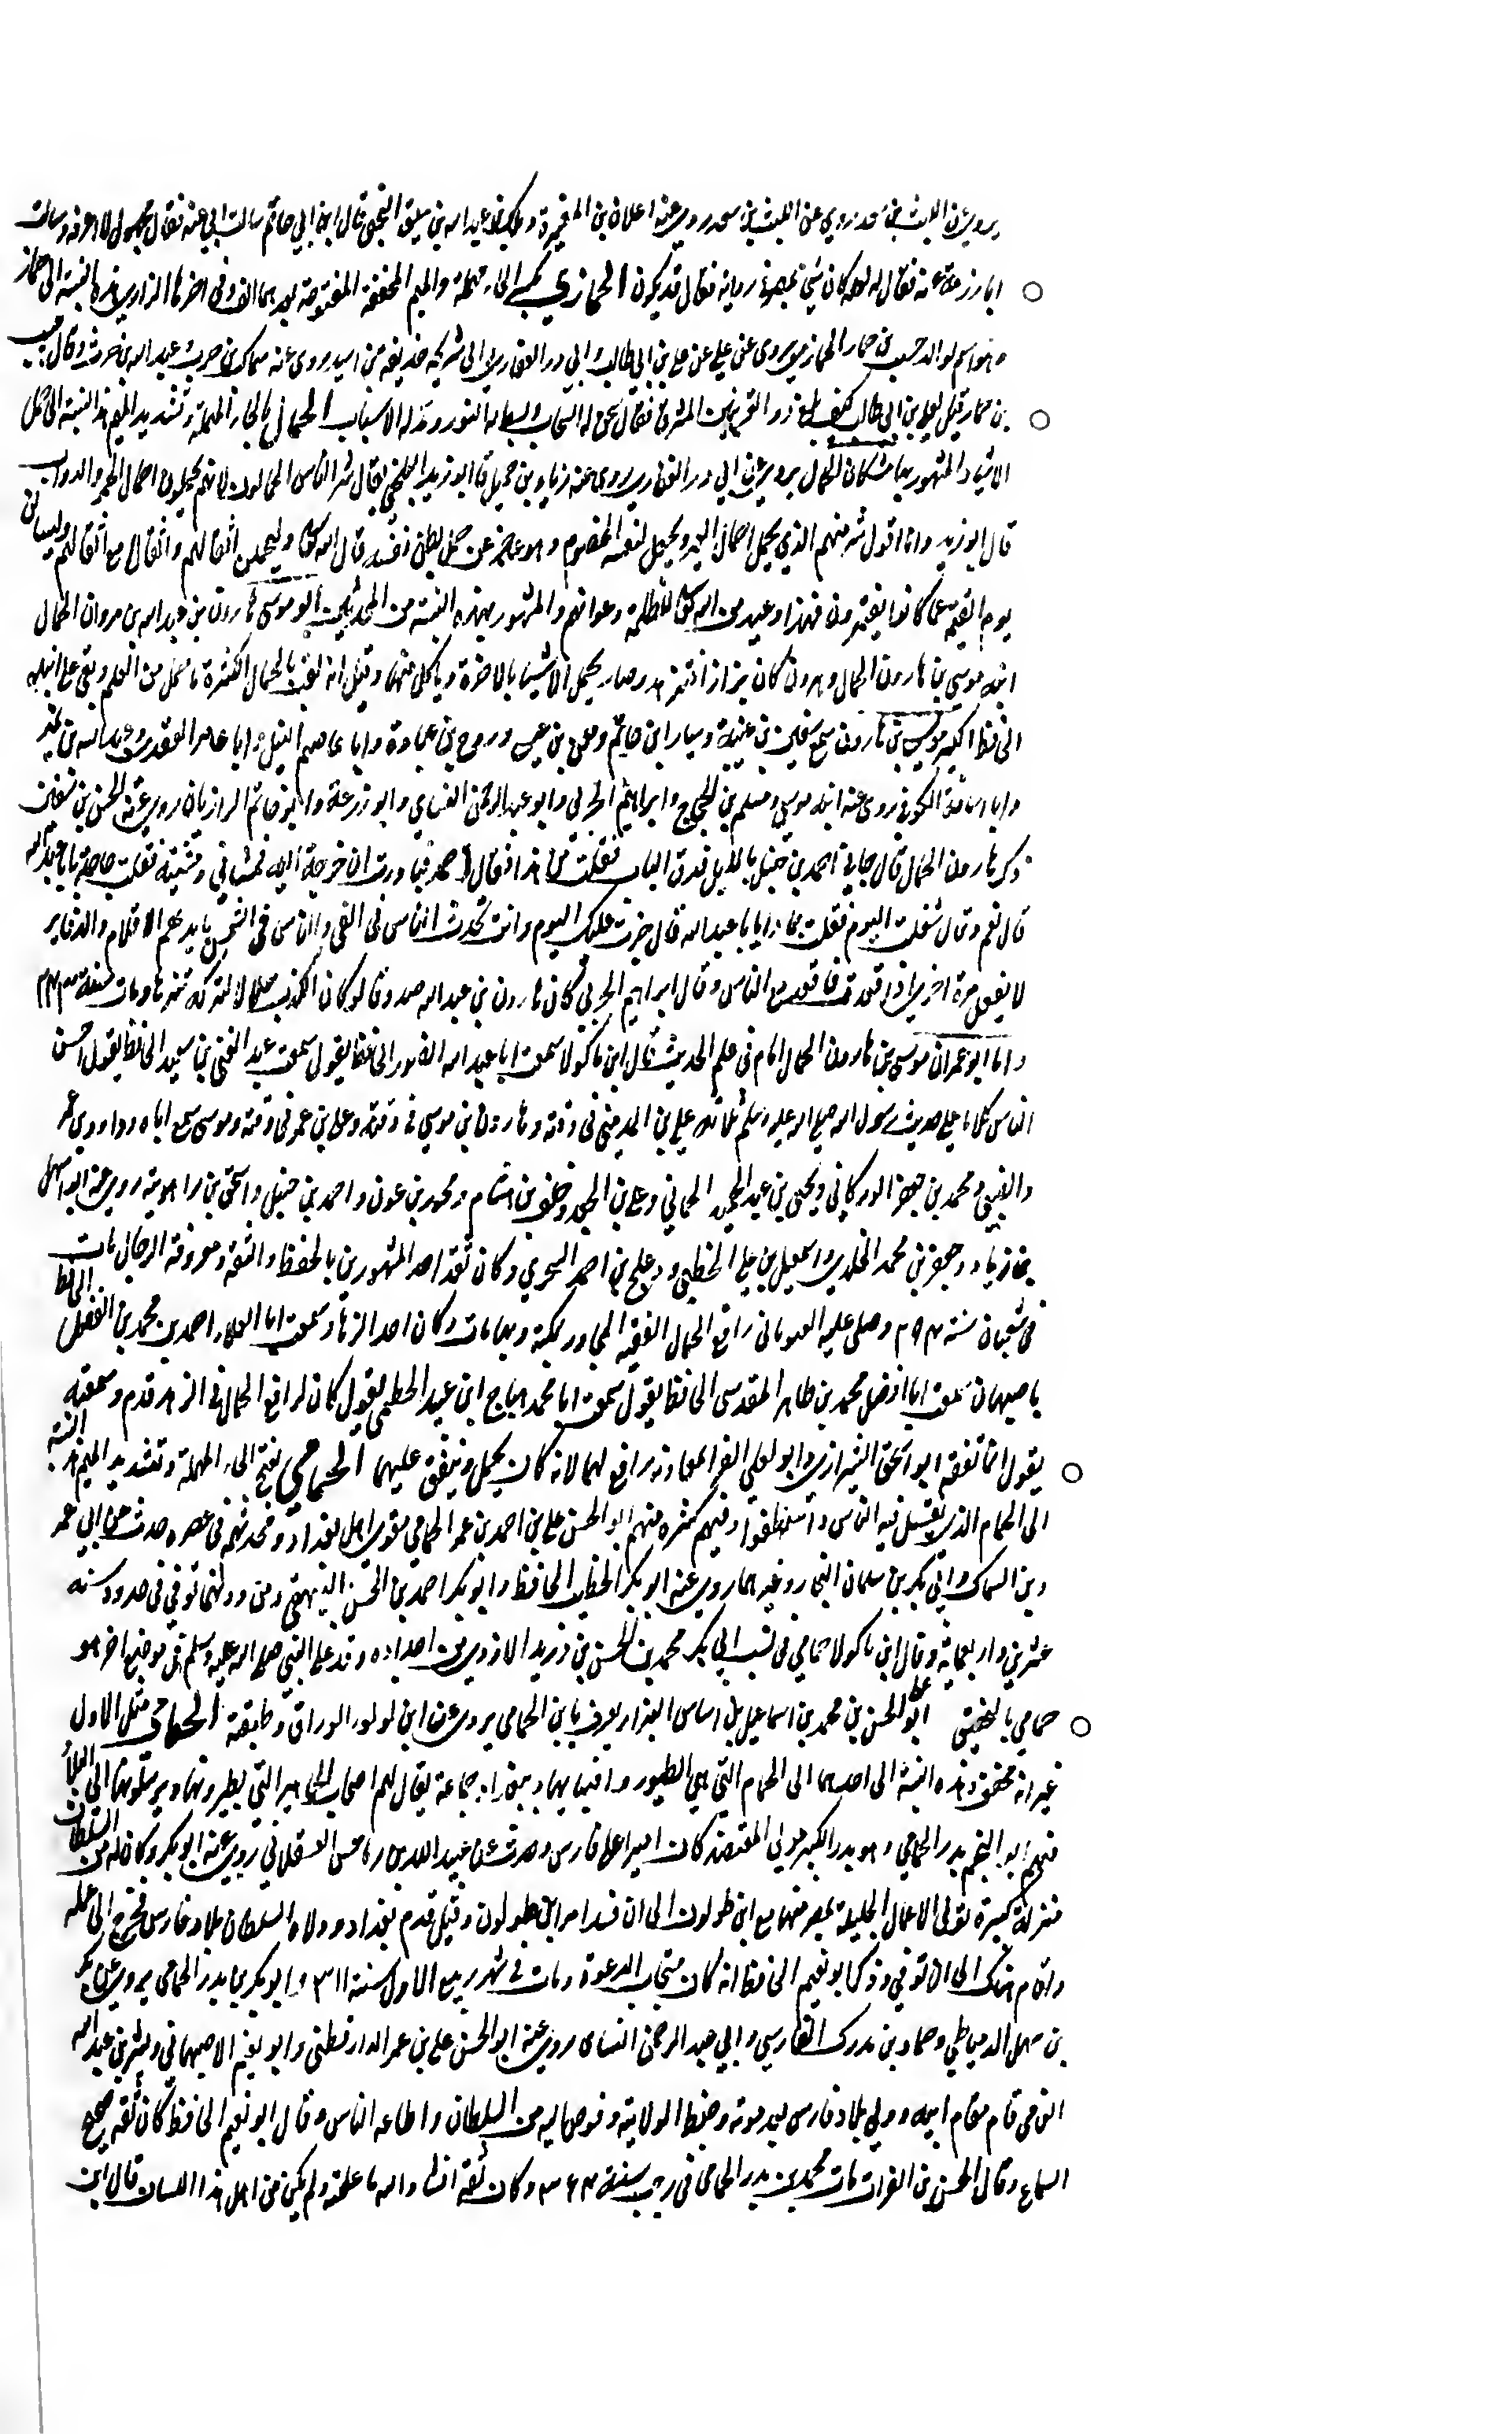 يروي عن الليث بن سعد روى عن الليث بن سعد روى عنه علان بن المغيرة وعبدالله بن قال ابن ابي حاتم سالت ابي عنه فقال مجهول لا اعرفه وسالت
ابا زرعة عنه فقال كان شيخ بمصر فقال قد يكون الحمازي بكسر الحاء مهملة والميم المخففة المفتوحة بعدهما الف وفي اخرها الزاى هذه النسبة الى حماز
وهو اسم لوالد حبيب بن حماز الحمازي يروى عن علي بن ابي طالب وابي ذر الغفاري وابي سريحة حذيفة بن اسيد روى عنه سماك بن حرب وعبدالله بن وقال حبيب
بن حماز قيل لعلي بن ابي طالب كيف بلغ ذو القرنين المشرق فقال سخر له السحاب وبسط له النور ومد له الاسباب الحمال بالحاء المهملة وتشديد الميم هذه النسبة الى حمل
الاشياء والمشهور بها الحمال يروي عن ابي ذر الغفاري روى عنه زياد بن جميل قال ابو زيد البلخي يقال شر الناس الحمالون لانهم يحملون احمال الخمر والدواب
قال ابو زيد وانا اقول شر منهم الذي يحمل احمال ويحمل لنفسه الخصوم وهو عاجز عن حمل قال الله تعالى وليحملن اثقالهم واثقالا مع اثقالهم وليسألن
يوم القيمة عما كانوا يفترون فهذا وعيد من الله تعالى للظلمة وعوانهم والمشهور بهذه النسبة من المحدثين ابو موسى هارون بن عبدالله بن مروان الحمال
ابنه موسى بن هارون الحمال وهرون كان بزازا فتزهد وصار يحمل الاشياء بالاجرة وياكل منها وقيل انه لقب بالحمال لكثرة ما حمل من العلم وبقي علم ابنه
الحافظ الكبير موسى بن هارون سمع سفين بن عيينة وسيار بن حاتم ومعن بن عيسى وروح بن عبادة وابا عاصم النبيل وابا عامر العقدي وعبدالله بن نمير
وابا اسامة الكوفي روى عنه ابنه موسى ومسلم بن الحجاج وابراهيم الحربي وابو عبدالرحمن النسائي وابو زرعة وابو حاتم الرازيان روى عنه الحسن بن سفين
ذكر هارون الحمال قال جاني احمد بن حنبل بالليل فدق الباب فقلت من هذا فقال احمد فبادرت ان خرجت اليه فمساني ومسيته فقلت حاجة يا ابا عبدالله
قال نعم وقال شغلت اليوم فقلت بماذا يا ابا عبدالله قال جزت عليك اليوم وانت تحدث الناس في الفي والناس في الشمس بايديهم الاقلام والدفاتر
لا تفعل مرة اخرى اذا قعدت فاقعد مع الناس وقال ابراهيم الحربي كان هارون بن عبدالله صدوقا لو كان الكذب حلالا لتركه تنزها ومات سنة ٢٤٣
واما ابو عمران موسى بن هارون الحمال امام في علم الحديث قال ابن ماكولا سمعت ابا عبدالله الصوري الحافظ يقول سمعت عبدالغني بن سعيد الحافظ يقول احسن
الناس كلاما على حديث رسول الله صلى الله عليه وسلم ثلاثة علي بن المديني في وقته وهارون بن موسى في وقته وعلي بن عمر في وقته وموسى سمع اباه وداود بن عمر
والضبي ومحمد بن جعفر الوركاني ويحيى بن عبدالحميد الحماني وعلي بن الجعد وخلف بن هشام ومحرز بن عون واحمد بن حنبل واسحق بن راهويه روى عنه ابو سهل
بن زياد وجعفر بن محمد الخلدي واسمعيل بن علي الخطبي ودعلج بن احمد السجزي وكان ثقة احد المشهورين بالحفظ والثقة ومعرفة الرجال مات
في شعبان سنة ٢٩٤ وصلى عليه رافع الحمال الفقيه المجاور بمكة وبها مات وكان احد الزهاد سمعت ابا العلاء احمد بن محمد بن الفضل الحافظ
باصبهان سمعت ابا الفضل محمد بن طاهر المقدسي الحافظ يقول سمعت ابا محمد هياج ابن عبيد الحطيني يقول كان لرافع الحمال في الزهد قدم وسمعته
يقول انما تفقه ابو اسحق الشيرازي وابو يعلى الفرا بمعاونة رافع لهما لانه كان يحمل وينفق عليهما الحمامي بفتح الحاء المهملة وتشديد الميم هذه النسبة
الى الحمام الذي يغتسل فيه الناس وفيهم كثرة منهم ابو الحسن علي بن احمد بن عمر الحمامي مقرى اهل بغداد ومحدثهم في عصره حدث عن ابي عمر
وبن السماك وابي بكر بن سلمان النجاد وغيرهما روى عنه ابو بكر الخطيب الحافظ وابو بكر احمد بن الحسين البيهقي ومن دونهما توفي في حدود سنة
عشرين واربعماية وقال ابن ماكولا حمامي في نسب ابي بكر محمد بن الحسن بن دريد الازدي من اجداده وفد على النبي صلى الله عليه وسلم في موضع اخر هو
حمامي بالتخفيف ابو الحسن بن محمد بن اسماعيل بن البزاز يعرف بابن الحمامي يروي عن ابن لولو الوراق وطبقته الحمامي مثل الاول
غير انه مخفف وهذه النسبة الى احدهما الى الحمام التي هي الطيور جماعة يقال لهم اصحاب التي يطيرونها ويرسلونها الى البلاد
منهم ابو النجم بدر الحمامي وهو بدر الكبير مولى المعتضد كان اميرا على فارس وحدث عن عبيدالله بن العسقلاني روى عنه ابو بكر وكان له من السلطان
منزلة كبيرة تولى الاعمال الجليلة بمصر منها مع ابن طولون الى ان فسد امر ابن طولون وقيل قدم بغداد وولاه السلطان بلاد فارس فخرج الى عمله
واقام هناك الى ان توفي وذكر ابو نعيم الحافظ انه كان مستجاب الدعوة ومات في شهر ربيع الاول سنة ٣١١ وابو بكر بن بدر الحمامي يروي عن بكر
بن سهل الدمياطي وحماد بن مدرك الفارسي وابي عبدالرحمن النسائي روى عنه ابو الحسن علي بن عمر الدارقطني وابو نعيم الاصبهاني وبشرى بن عبدالله
الفاتني قام مقام ابيه وولي بلاد فارس بعد موته وضبط الولاية وفوض اليه من السلطان واطاعه الناس وقال ابو نعيم الحافظ كان ثقة صحيح
السماع وقال الحسن بن الفرات مات محمد بن بدر الحمامي في رجب سنة ٣٦٤ وكان ثقة انشا والله ما علمته ولم يكن من اهل هذا اللسان قال ابن